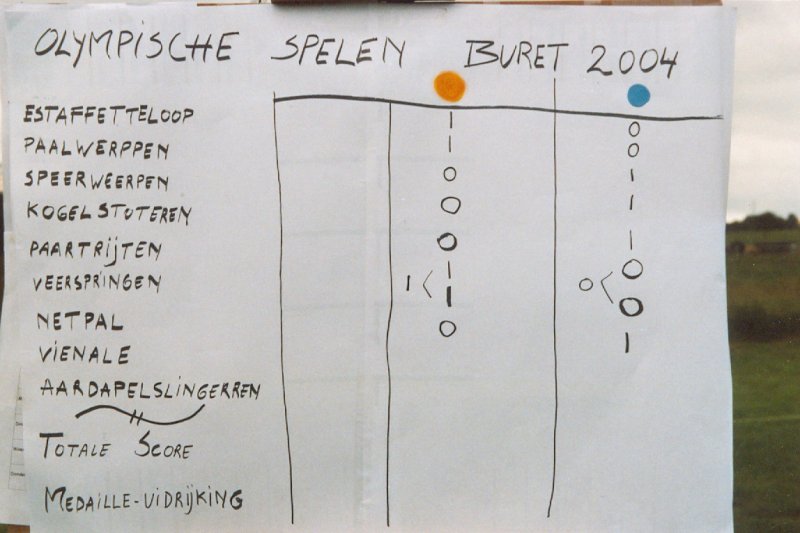 OLYMPISCHE SPELEN BURET 2004
ESTAFFETTELOOP | O
PAALWERPPEN | O
SPEERWEERPEN O |
KOGELSTOTEREN O |
PAARTRIJTEN O |
VEERSPRINGEN 1 < | O < O
NETPAL | O
VIENALE O |
AARDAPELSLINGERREN
TOTALE SCORE
MEDAILLE-UIDRIJKING